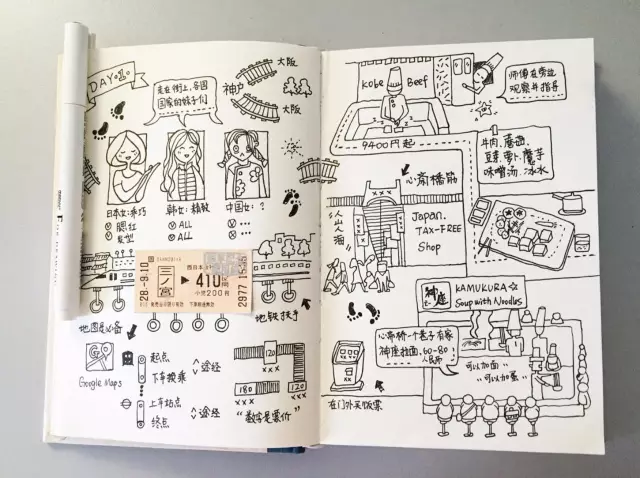 DAY.1
走在街上,各国
国家的妹子们
神户
大阪
大阪
日本女:乖巧
韩女:精致
中国女:?
腮红
发型
ALL
ALL
...
...
999
28.-9.10
三ノ宮
▶
410円
小児200円
2977
地铁扶手
地图是必备
Google Maps
起点
下车换乘
上车站点
终点
途经
途经
120
180
120
xxx
xxx
xxx
"数字是票价"
Kobe Beef
师傅在旁边
观察并指导
9400円起
牛肉、蘑菇、
豆芽、萝卜、魔芋
味噌汤、冰水
心斎橋筋
人山人海
xxx
Japan.
TAX-FREE
Shop
神座
KAMUKURA☆
Soup with Noodles
心斋桥一个巷子有家
神座拉面,60-80
人民币
可以加面
可以加蛋
xxx
在门外买饭票